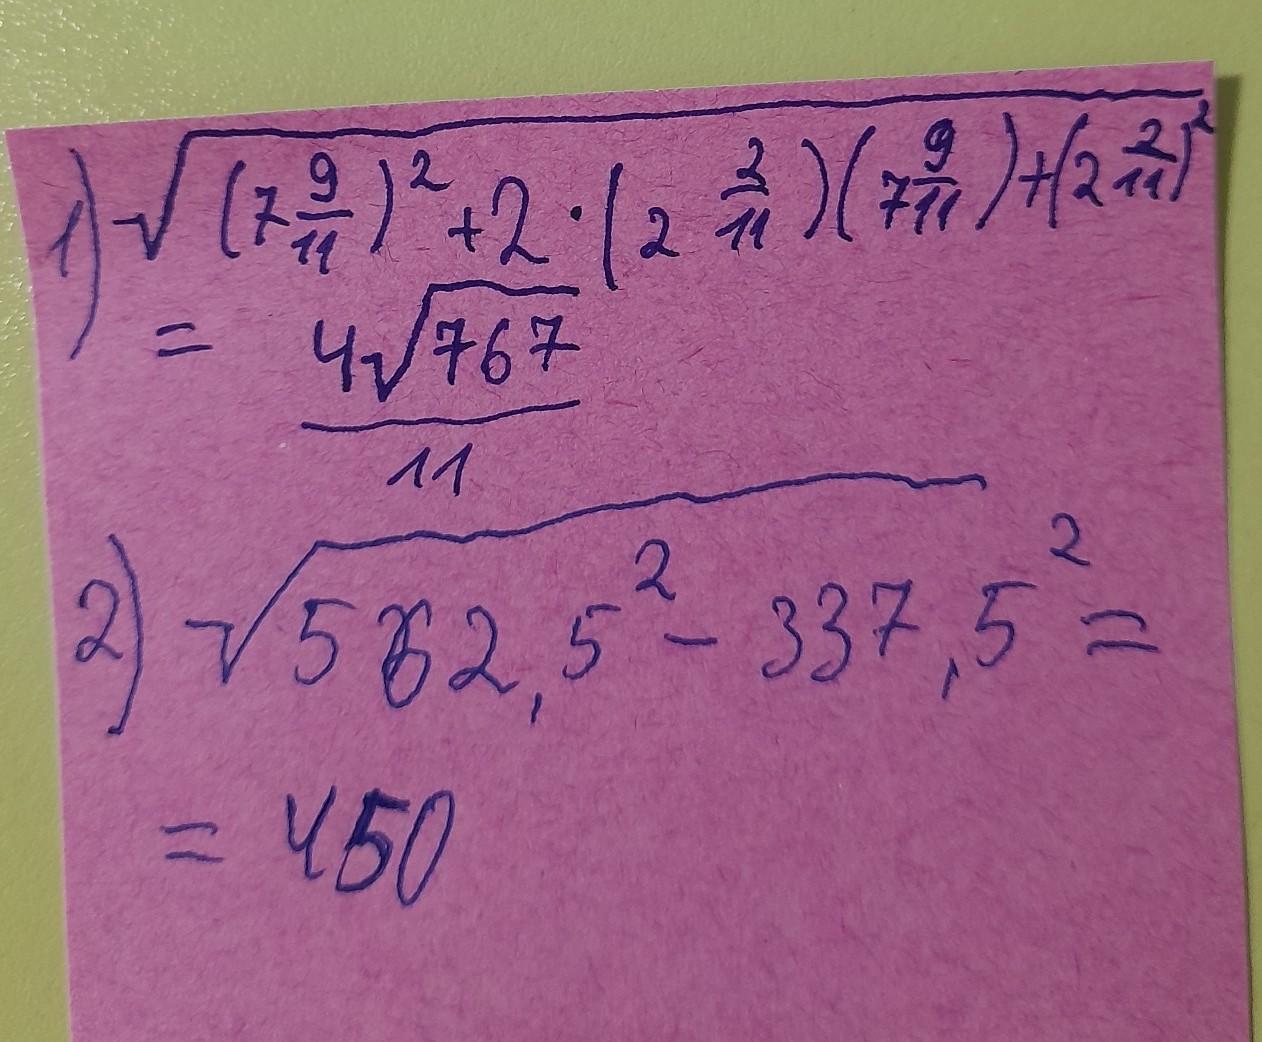 1) √((7 9/11)² + 2 · (2 2/11)(7 9/11) + (2 2/11)²)
= 4√767 / 11
2) √(562,5² - 337,5²) =
= 450